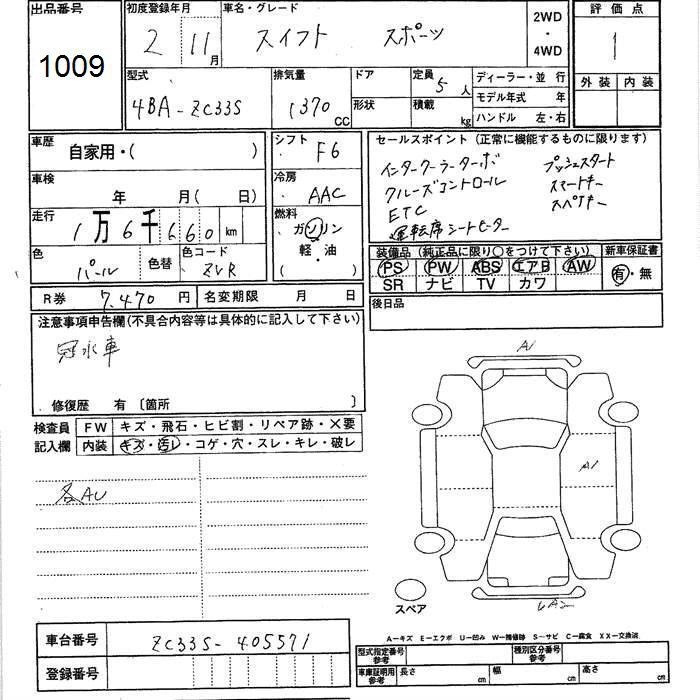 出品番号 初度登録年月 車名・グレード 2WD・4WD 評価点
1009 2 11月 スイフト スポーツ 1
外装 内装
型式 排気量 ドア 定員 5人 ディーラー・並行
4BA-ZC33S 1370 CC 形状 積載 kg モデル年式 年
ハンドル 左・右
車歴 自家用・( ) シフト F6 セールスポイント (正常に機能するものに限ります)
車検 年 月( 日) 冷房 AAC インタークーラーターボ プッシュスタート
クルーズコントロール スマートキー
ETC スペアキー
運転席シートヒーター
走行 1万6千660 km 燃料 ガソリン 軽・油 ( )
色 パール 色替 色コード ZVR
装備品 (純正品に限り○をつけて下さい) 新車保証書
PS PW ABS エアB AW 有・無
SR ナビ TV カワ
R券 7,470 円 名変期限 月 日
後日品
注意事項申告欄(不具合内容等は具体的に記入して下さい)
冠水車
修復歴 有 〔箇所
検査員 FW キズ・飛石・ヒビ割・リペア跡・×要
記入欄 内装 キズ・汚レ・コゲ・穴・スレ・キレ・破レ
各AU
A1
A1
スペア
A-キズ E-エクボ U-凹み W-補修跡 S-サビ C-腐食 XX-交換済
車台番号 ZC33S-405571
登録番号
型式指定番号 参考 種別区分番号 参考
車庫証明用 参考 長さ cm 幅 cm 高さ cm